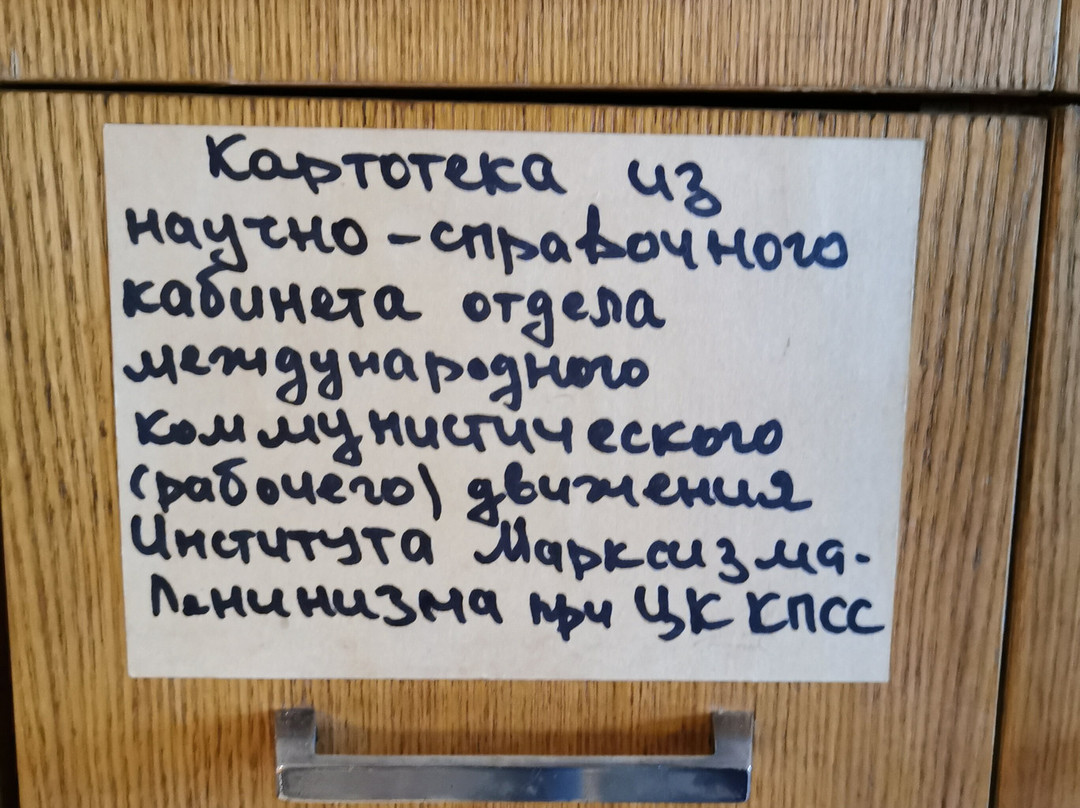 Картотека из
научно-справочного
кабинета отдела
международного
коммунистического
(рабочего) движения
Института Марксизма-
Ленинизма при ЦК КПСС